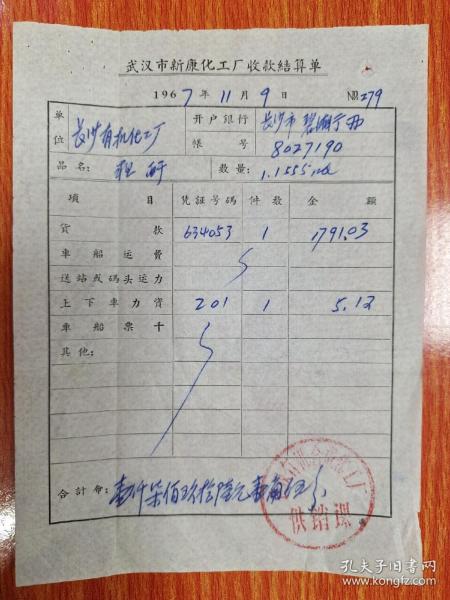 武汉市新康化工厂收款结算单
1967年11月9日 №279
单位 长沙有机化工厂 开户银行 长沙市
帐号 8027190
品名: 数量: 1.1555
项目 凭证号码 件数 金额
货款 634053 1 1791.03
車船运費
送站或码头运力
上下車力資 201 1 5.12
車船票十
其他:
合計金: 壹仟柒佰玖拾陆元壹角伍分
供销课
孔夫子旧书网
www.kongfz.com